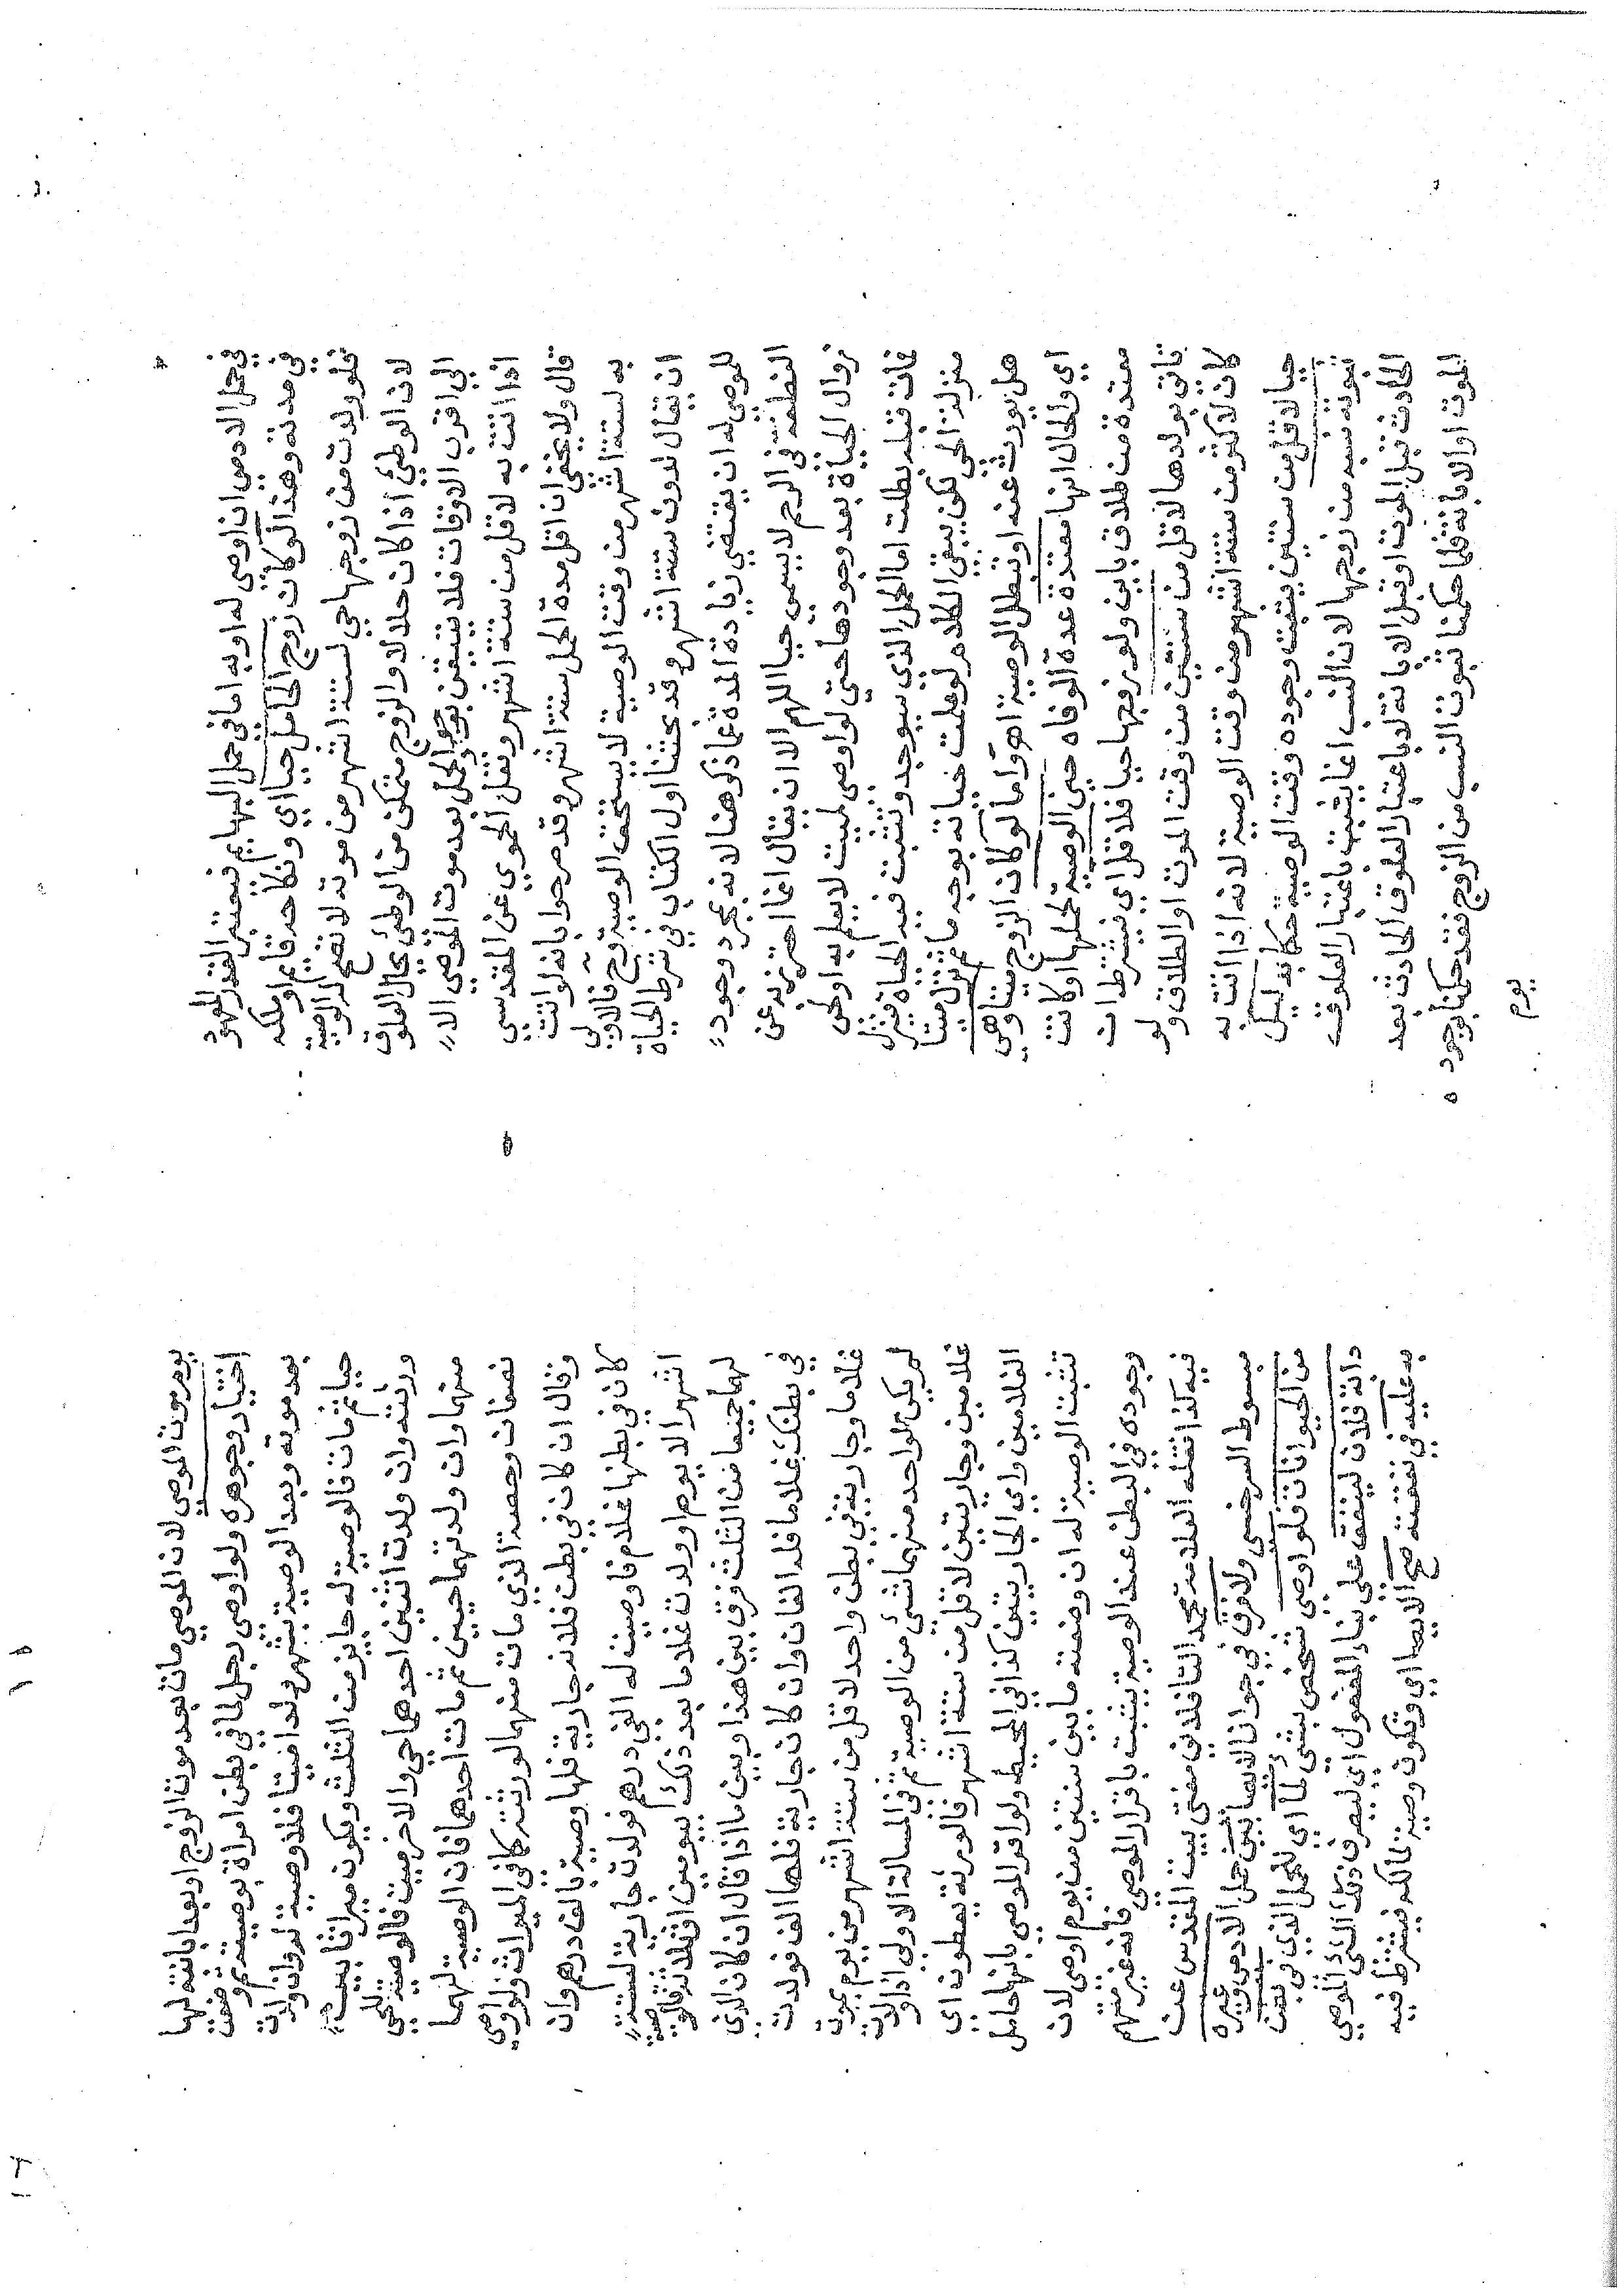 في حمل الادمي ان اوصى له او به اما في حمل البهايم فيعتبر القدر المعهود
في مدته وهذا لو كان زوج الحامل حيا اي ونكاحه قايم او ملكه
فلو ولدت من زوجها حي لستة اشهر من موته لا تصح له الوصية
لان الوطئ اذا كان حلالا والزوج متمكن من الوطئ يحال العلوق
الي اقرب الاوقات فلا تتيقن بوجود الحمل بعد موت الموصي الا
اذا اتت به لاقل من ستة اشهر ونقل الحموي عن المقدسي
قال ولا يخفى ان اقل مدة الحمل ستة اشهر وقد صرحوا بانه لو اتت
به لستة اشهر من وقت الوصية لا يستحق الوصية وح فالاولى
ان يقال لدون ستة اشهر وقد بحثنا اول الكتاب في شرط الحياة
للموصى له ان يقتضي زيادة المدة عما ذكر هنا لانه بمجرد وجود
النطفة في الرحم لا يسمى حيا اللهم الا ان يقال انما احترز به عن
زوال الحياة بعد وجودها حتي لو اوصى لميت لا يعلم به او لمن
مات قبله بطلت اما الحمل الذي سيوجد وتثبت فيه الحياة فينزل
منزلة الحي لكن يبقى الكلام لو علمت حياته بوجه ما ثم نزل ميتا
هل يورث عنه او تبطل الوصية اهـ واما لو كان الزوج ميتا وهي
اي والحال انها معتدة عدة الوفاه حين الوصية لحملها او كانت
معتدة من طلاق باين ولو حيا فلاقل اي فيشترط ان
تاتي بولدها لاقل من سنتين من وقت الموت او الطلاق ولو
كان لاكثر من ستة اشهر من وقت الوصية لانه اذا اتت به
حيا لاقل من سنتين يثبت وجوده وقت الوصية حكما بدليل
ثبوت نسبه من زوجها لان النسب انما يثبت باعتبار العلوق
الحادث قبل الموت او قبل الابانة لا باعتبار العلوق الحادث بعد
الموت او الابانة فلما حكمنا بثبوت النسب من الزوج فقد حكمنا بوجوده
يوم
يوم موت الموصي لان الموصي مات بعد موت الزوج او بعد ابانته لها
اختيار وجوهره ولو اوصى رجل لما في بطن امراة بوصية ثم وضعت
بعد موته وبعد الوصية بشهر ولدا ميتا فلا وصية له وان ولدت
حيا ثم مات فالوصية له جايز من الثلث ويكون ميراثا بين
ورثته وان ولدت اثنين احدهما حي والاخر ميت فالوصية للحي
منهما وان ولدتهما حيين ثم مات احدهما فان الوصية لهما
نصفان وحصة الذي مات منهما لورثته كما في الميراث ولو اوصى
وقال ان كان في بطن فلانة جارية فلها وصية بالف درهم وان
كان في بطنها غلام فاوصيت له الفي درهم فولدت جارية لستة
اشهر الا يوم او ولدت غلاما بعد ذلك بيومين او ثلاثة فالوصية
لهما جميعا من الثلث فرق بين هذا وبين ما اذا قال ان كان الذي
في بطنك غلاما فله الفان وان كان جارية فلها الف فولدت
غلاما وجارية في بطن واحد لاقل من ستة اشهر من يوم يموت
لم يكن لواحد منهما شئ من الوصية ثم في المسالة الاولى اذا ولدت
غلامين وجاريتين لاقل من ستة اشهر فالورثة يعطون اي
الغلامين واي الجاريتين كذا في المحيط ولو اقر الموصي بانها حامل
تثبت الوصية له ان وضعته ما بين سنتين من يوم اوصى لان
وجوده في البطن عند الوصية يثبت باقرار الموصي فانه غير متهم
فيه كذا نقله العلامة محمد التافلاني مفتي بيت المقدس عن
مبسوط السرخسي ولا فرق في جواز الايصا بين حمل الادمي وغيره
من الحيوانات فلو اوصى شخص بشئ لما اي للحمل الذي في بطن
دابة فلان لينفق على بناء المفعول اي ليصرف ذلك الشئ الموصي
به عليه في نفقته صح الايصا اي وتكون وصية لمالكه فيشترط فيه